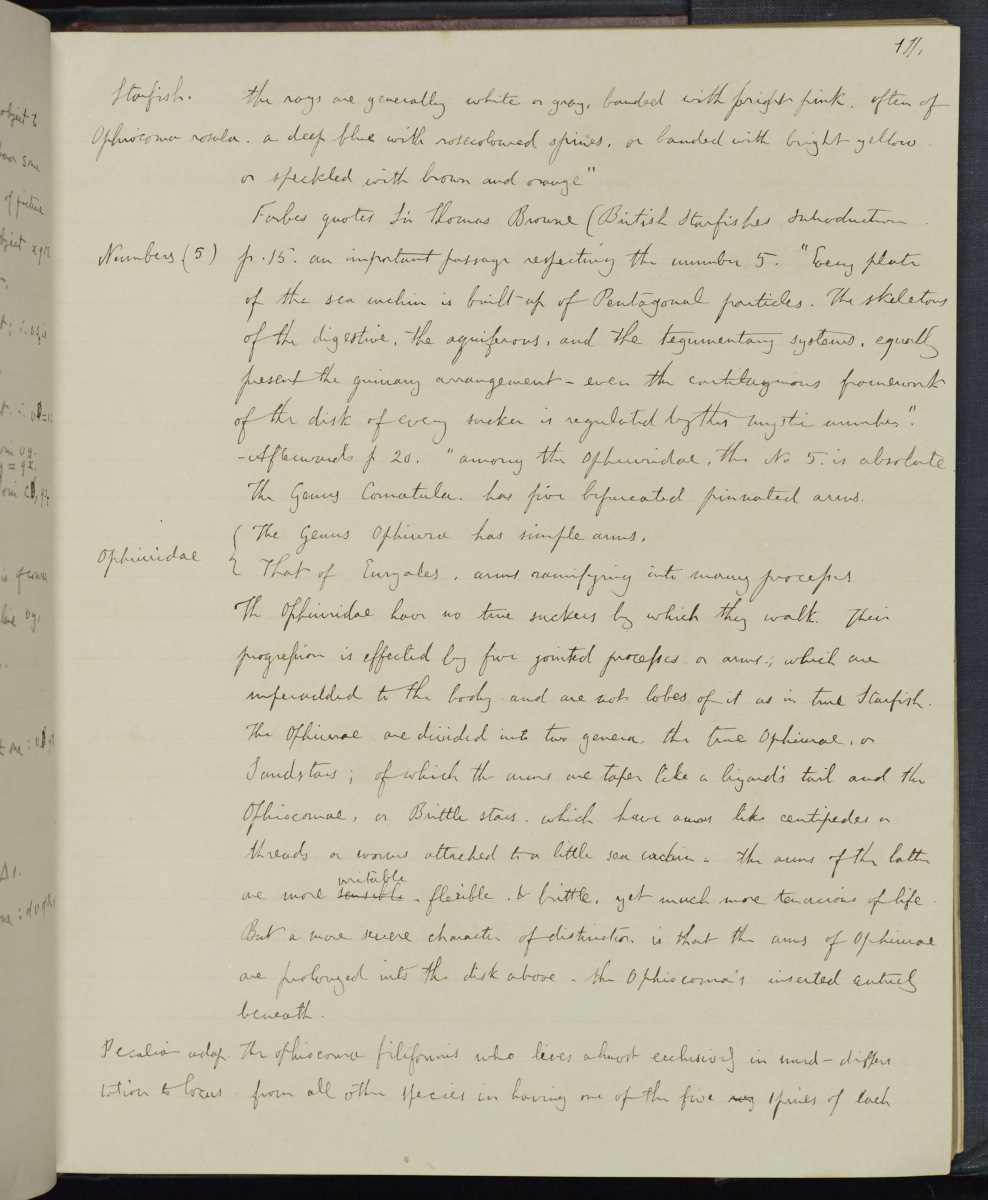 171.
Starfish. the rays are generally white or gray, banded with bright pink, often of
Ophiocoma rosula. a deep blue with rosecoloured spines, or banded with bright yellow
or speckled with brown and orange"
Forbes quotes Sir Thomas Browne (British Starfishes Introduction
Numbers (5) p. 15. an important passage respecting the number 5. "Every plate
of the sea urchin is built up of Pentagonal particles. The skeletons
of the digestive, the aquiferous, and the tegumentary systems, equally
present the quinary arrangement - even the cartilaginous framework
of the disk of every sucker is regulated by this mystic number".
- Afterwards p 20. "among the Ophiuridae, the No 5. is absolute.
The Genus Comatula. has five bifurcated pinnated arms.
{ The Genus Ophiura has simple arms.
Ophiuridae
That of Euryales, arms ramifying into many processes
The Ophiuridae have no true suckers by which they walk. Their
progression is effected by five jointed processes or arms; which are
superadded to the body and are not lobes of it as in true Starfish.
The Ophiurae are divided into two genera. the true Ophiurae, or
Sandstars; of which the arms are taper like a lizard's tail and the
Ophiocomae, or Brittle stars. which have arms like centipedes or
threads or worms attached to a little sea urchin - the arms of the latter
irritable
are more sensible - flexible. & brittle, yet much more tenacious of life.
But a more severe character of distinction is that the arms of Ophiurae
are prolonged into the disk above - the Ophiocoma's inserted entirely
beneath.
Peculiar adap. The ophiocoma filiformis who lives almost exclusively in mud - differs
tation to locus. from all other species in having one of the five ray spines of each